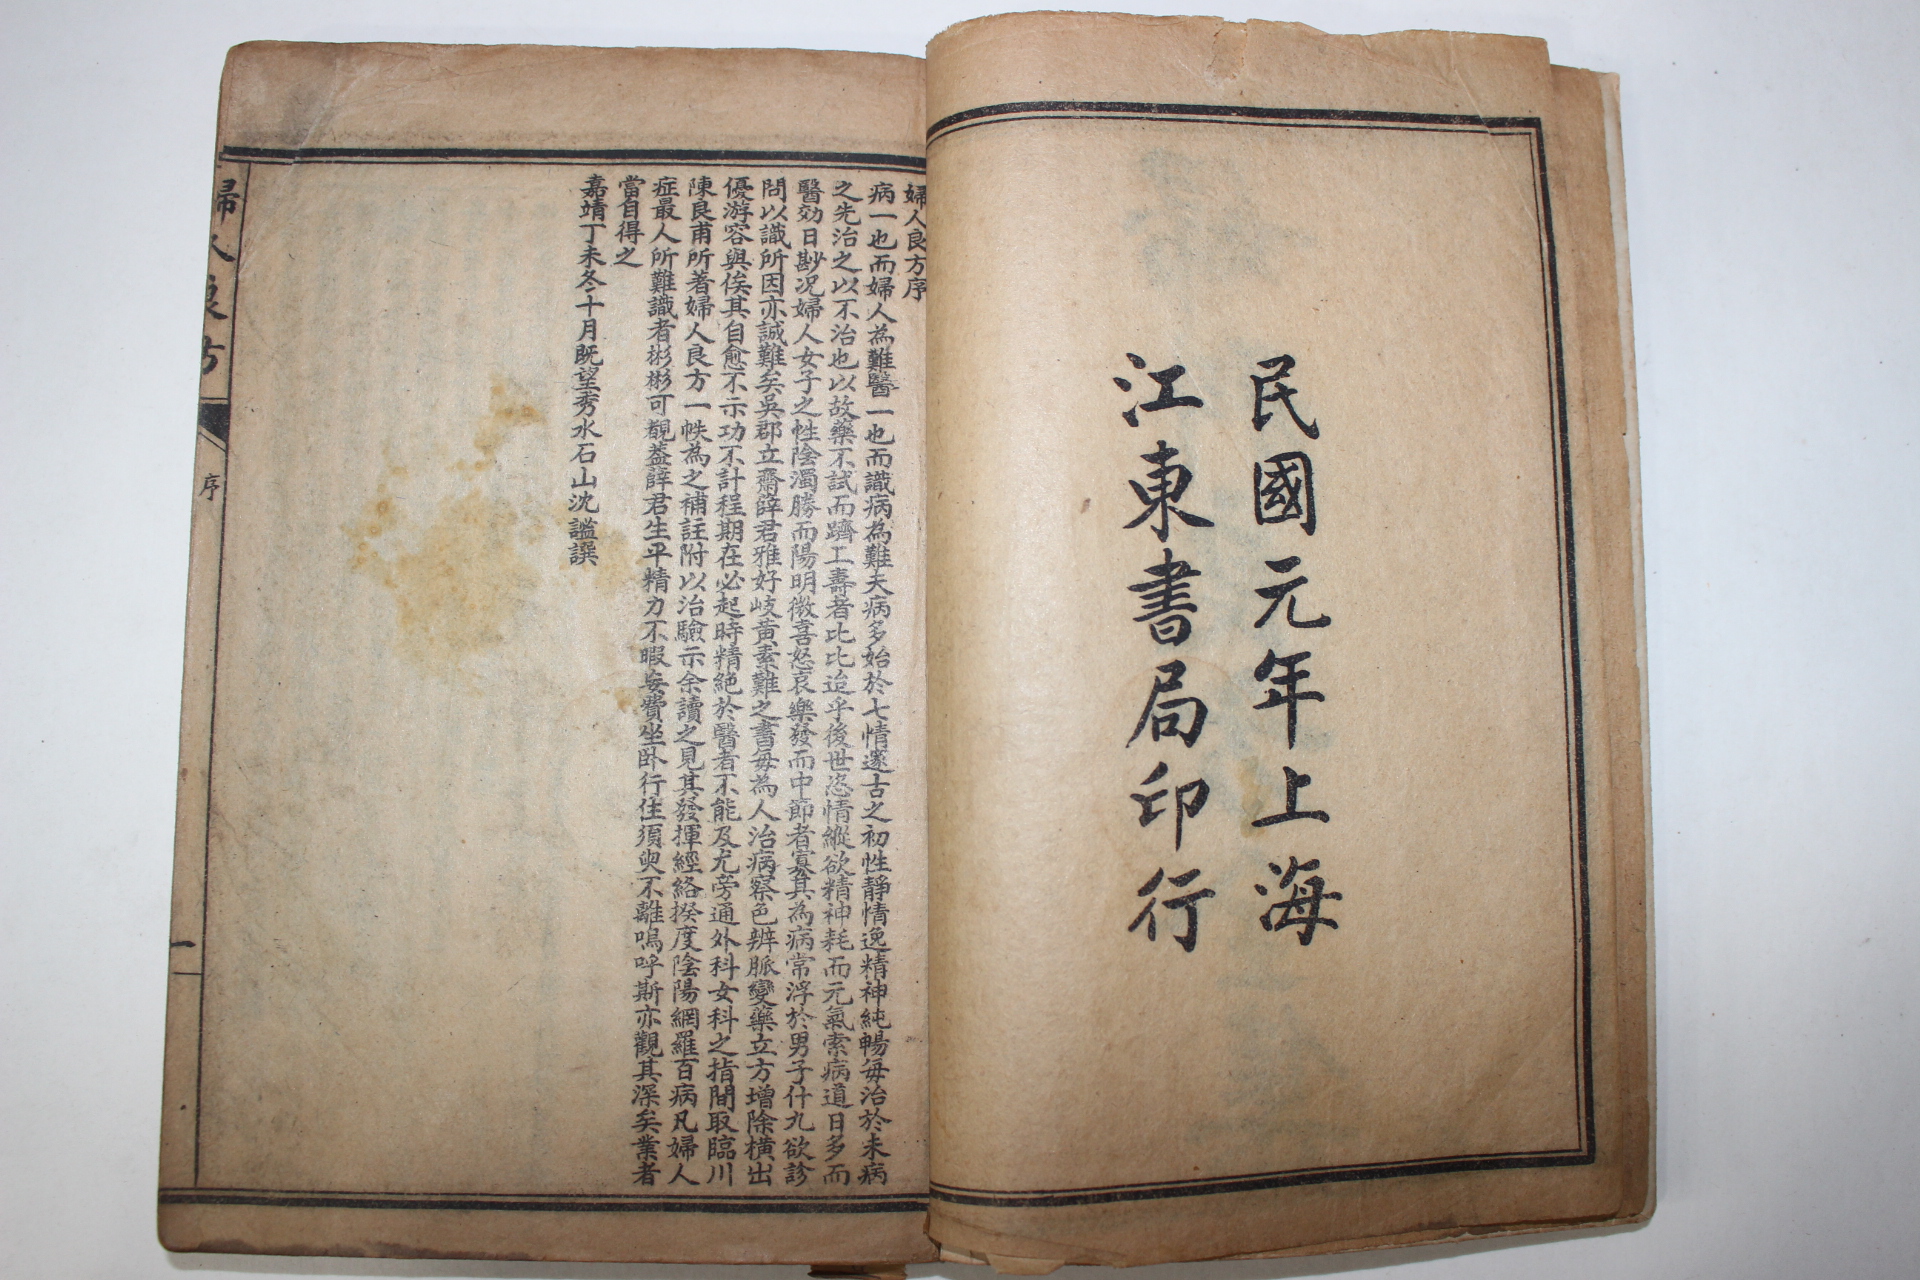 民國元年上海
江東書局印行
婦人良方序
病一也而婦人為難醫一也而識病為難夫病多始於七情邃古之初性靜情逸精神純暢每治於未病
之先治之以不治也以故藥不試而躋工壽者比比迨乎後世恣情縱欲精神耗而元氣索病道日多而
醫効日尠况婦人女子之性陰濁勝而陽明微喜怒哀樂發而中節者寡其為病常浮於男子什九欲診
問以識所因亦誠難矣吳郡立齋薛君雅好岐黄素難之書每為人治病察色辨脈變藥立方增除橫出
優游容與俟其自愈不示功不計程期在必起時精絶於醫者不能及尤旁通外科女科之指間取臨川
陳良甫所著婦人良方一帙為之補註附以治驗示余讀之見其發揮經絡揆度陰陽網羅百病凡婦人
症最人所難識者彬彬可觀蓋薛君生平精力不暇妄費坐卧行住須臾不離嗚呼斯亦觀其深矣業者
當自得之
嘉靖丁未冬十月既望秀水石山沈謐譔
婦人良方
序
一